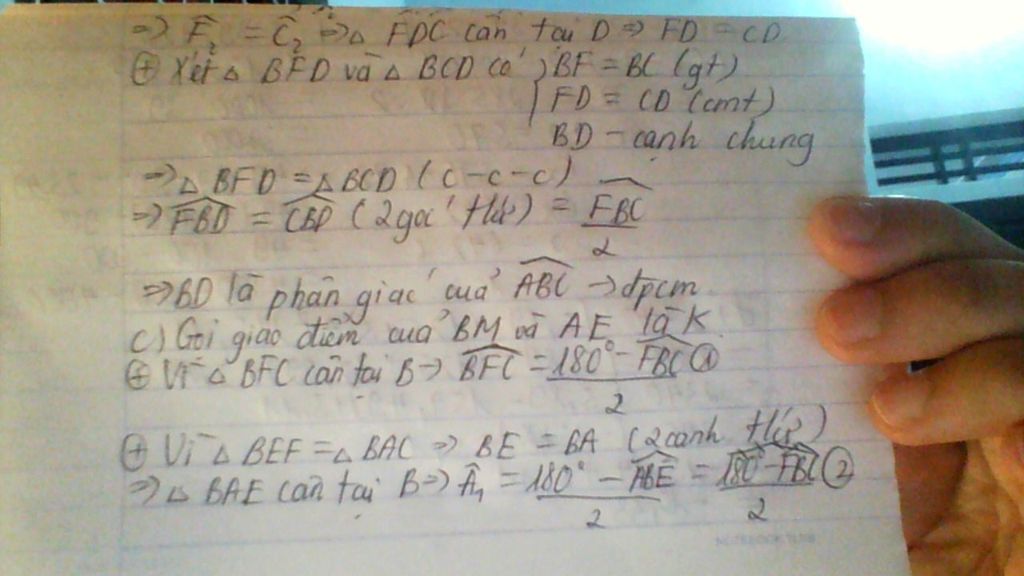 ⇒ F̂₂ = Ĉ₂ ⇒ △ FDC cân tại D ⇒ FD = CD
⊕ Xét △ BFD và △ BCD có BF = BC (gt)
FD = CD (cmt)
BD - cạnh chung
⇒ △ BFD = △ BCD (c-c-c)
⇒ \widehat{FBD} = \widehat{CBD} (2 góc t/ứ) = \frac{\widehat{FBC}}{2}
⇒ BD là phân giác của \widehat{ABC} → đpcm
c) Gọi giao điểm của BM và AE là K
⊕ Vì △ BFC cân tại B → \widehat{BFC} = \frac{180° - \widehat{FBC}}{2} ①
⊕ Vì △ BEF = △ BAC ⇒ BE = BA (2 cạnh t/ứ)
⇒ △ BAE cân tại B ⇒ Â₁ = \frac{180° - \widehat{ABE}}{2} = \frac{180° - \widehat{FBC}}{2} ②